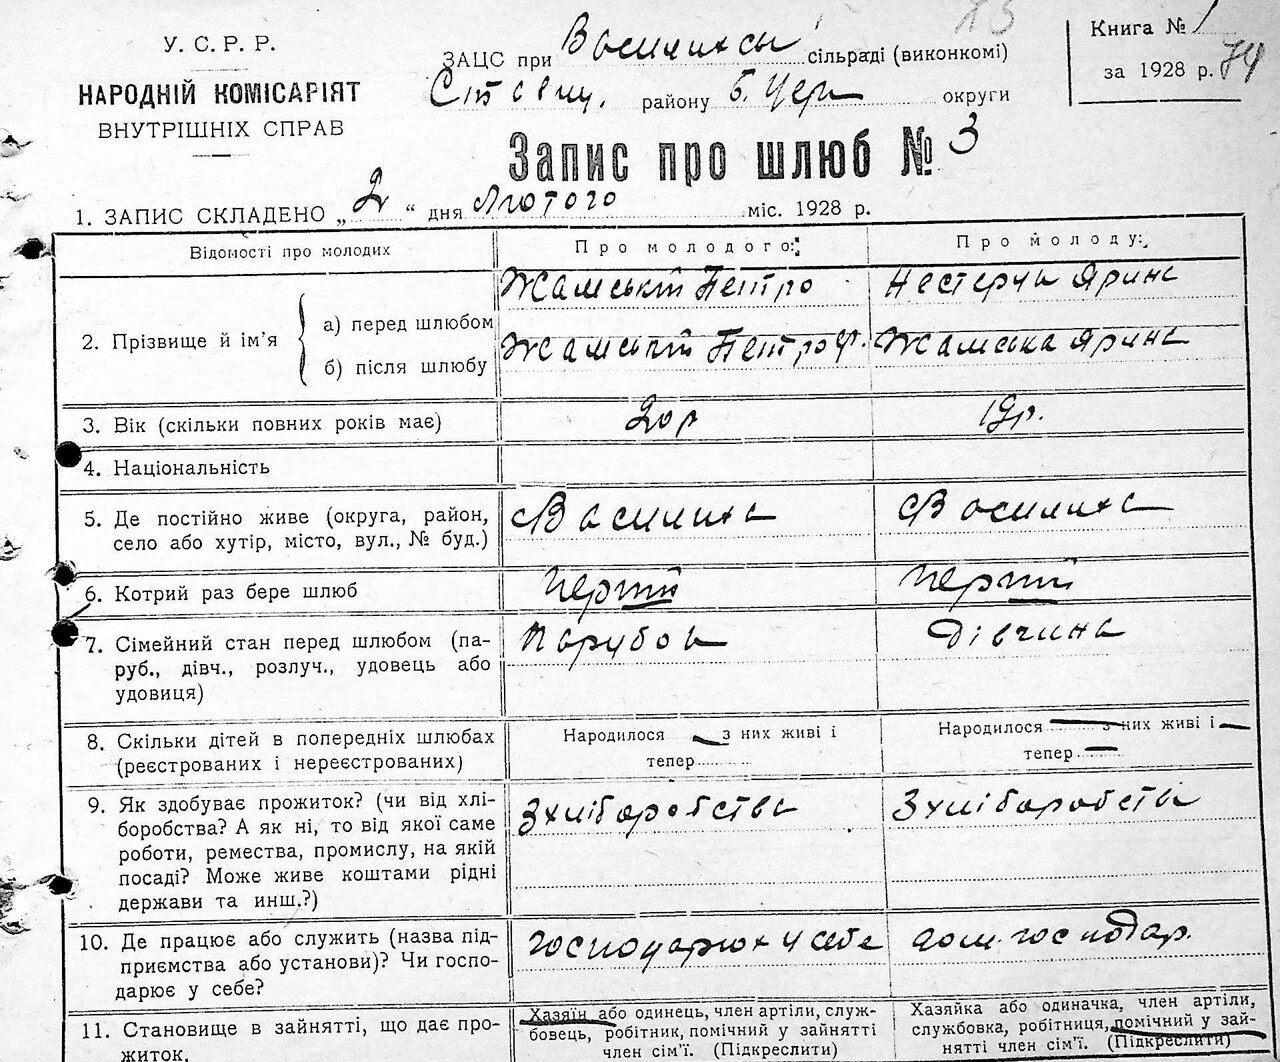 У. С. Р. Р.
НАРОДНІЙ КОМІСАРІЯТ
ВНУТРІШНІХ СПРАВ
ЗАЦС при Василисы сільраді (виконкомі)
району Б. Церк округи
Книга № 1
за 1928 р. 74
Запис про шлюб № 3
1. ЗАПИС СКЛАДЕНО „ 2 “ дня Лютого міс. 1928 р.
Відомості про молодих
Про молодого:
Про молоду:
2. Прізвище й ім’я
а) перед шлюбом
Жамський Петро
Нестерчу Ярина
б) після шлюбу
Жамський Петро Ф.
Жамська Ярина
3. Вік (скільки повних років має)
20 р
19 р.
4. Національність
5. Де постійно живе (округа, район,
село або хутір, місто, вул., № буд.)
с Василиха
с Василиха
6. Котрий раз бере шлюб
перший
перший
7. Сімейний стан перед шлюбом (па-
руб., дівч., розлуч., удовець або
удовиця)
Парубок
Дівчина
8. Скільки дітей в попередніх шлюбах
(реєстрованих і нереєстрованих)
Народилося — з них живі і
тепер
Народилося — з них живі і —
тепер —
9. Як здобуває прожиток? (чи від хлі-
боробства? А як ні, то від якої саме
роботи, ремества, промислу, на якій
посаді? Може живе коштами рідні
держави та инш.?)
З хліборобства
З хліборобства
10. Де працює або служить (назва під-
приємства або установи)? Чи госпо-
дарює у себе?
господарює у себе
дом. господар.
11. Становище в зайнятті, що дає про-
житок.
Хазяїн або одинець, член артіли, служ-
бовець, робітник, помічний у зайнятті
член сім’ї. (Підкреслити)
Хазяйка або одиначка, член артіли,
службовка, робітниця, помічний у зай-
нятті член сім’ї. (Підкреслити)